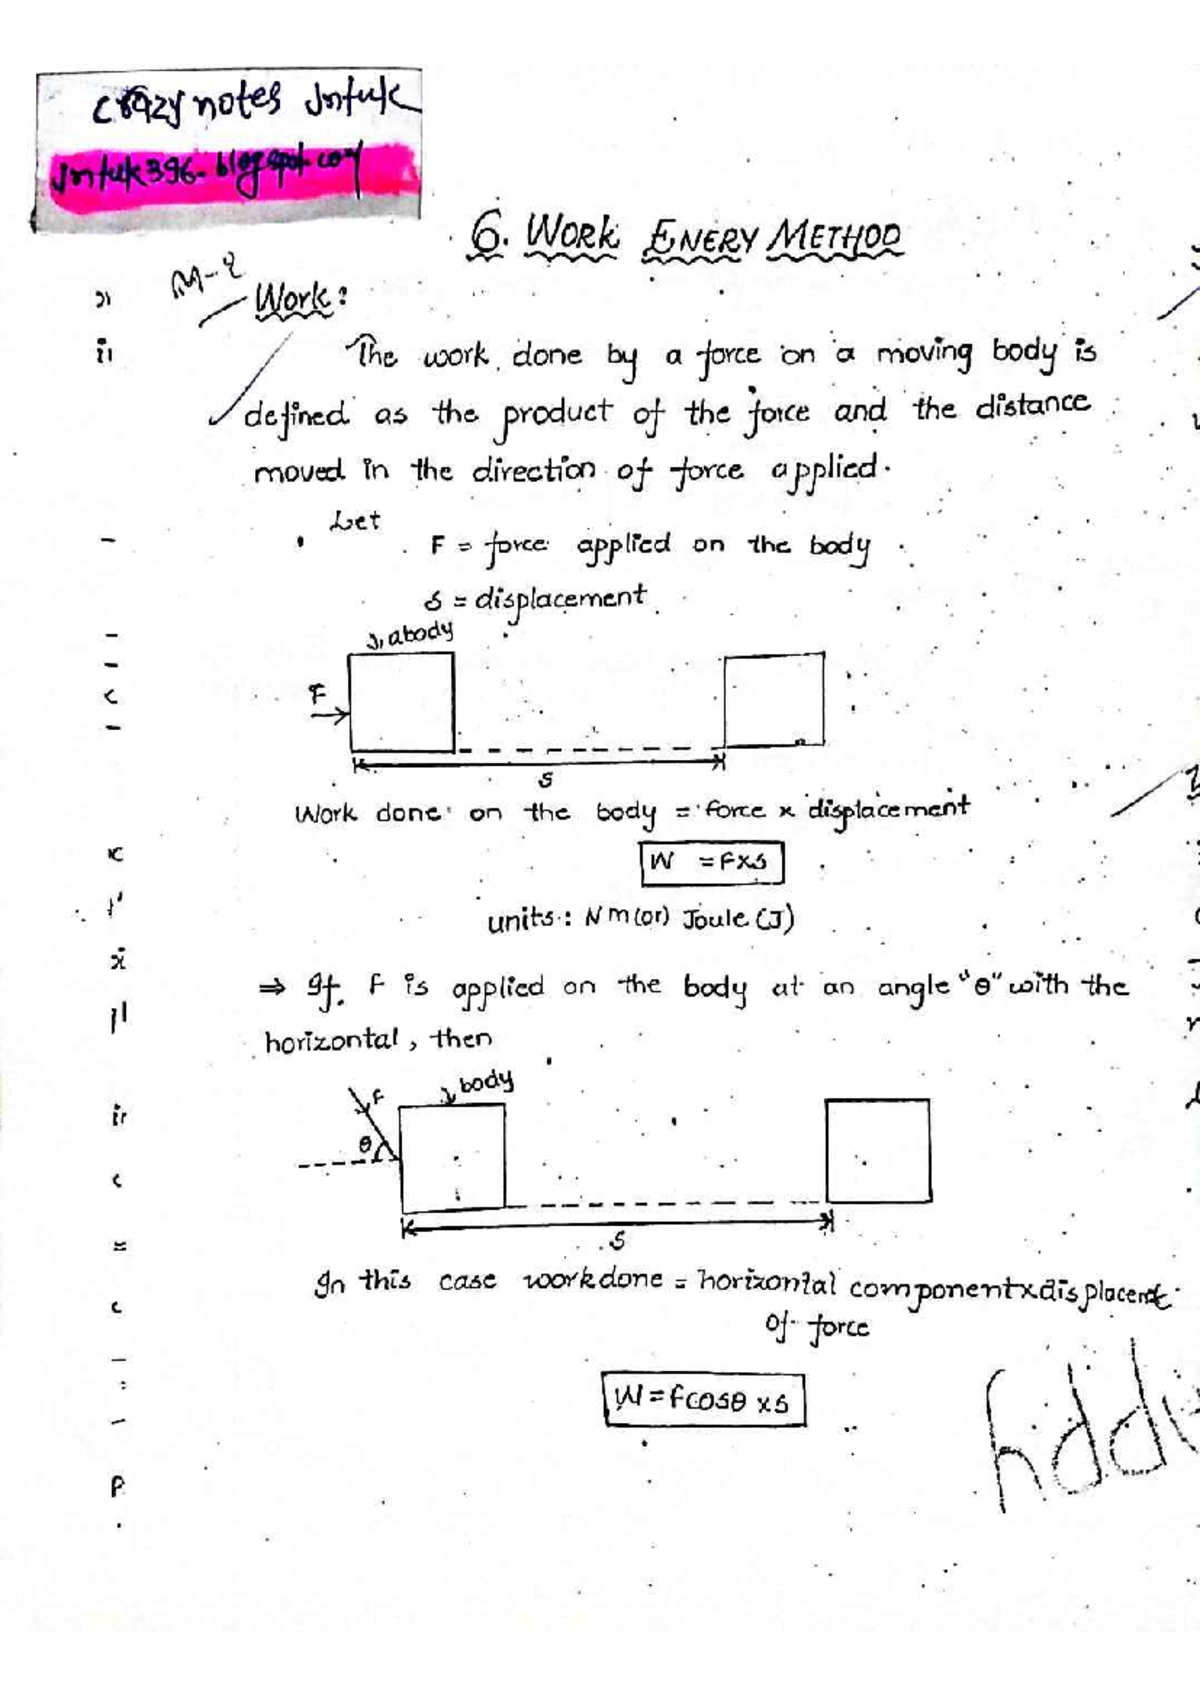 crazy notes Jntuk
Jntuk396.blogspot.com
6. WORK ENERY METHOD
Work:
The work done by a force on a moving body is
defined as the product of the force and the distance
moved in the direction of force applied.
Let
F = force applied on the body
S = displacement
a body
F
S
Work done on the body = force x displacement
W = F x S
units: Nm (or) Joule (J)
⇒ If F is applied on the body at an angle "θ" with the
horizontal, then
body
F
θ
S
In this case workdone = horizontal component x displacement
of force
W = F cosθ x S